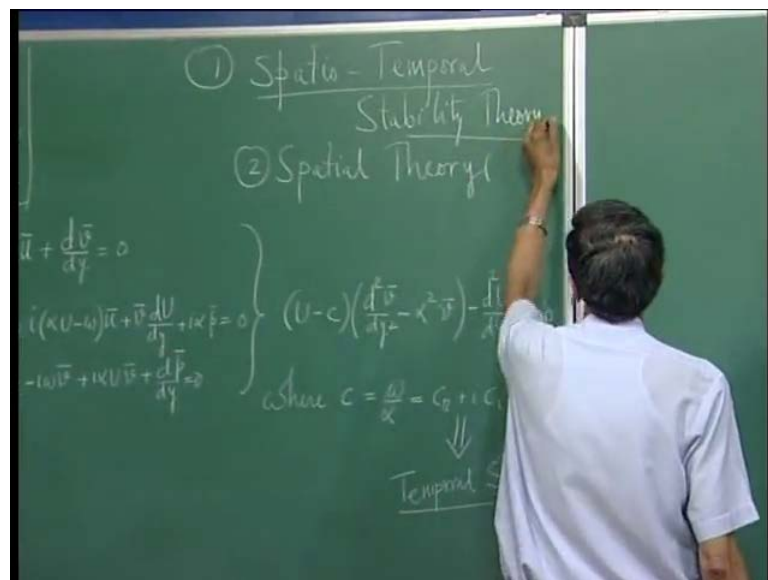 ① Spatio-Temporal
Stability Theory
② Spatial Theory (
ū + dv̄/dy = 0
i(αU-ω)ū + v̄ dU/dy + iα p̄ = 0
-iωv̄ + iαUv̄ + dp̄/dy = 0
(U-c)(d²v̄/dy² - α²v̄) - d²
where c = ω/α = c_R + i c_i
⇓
Temporal